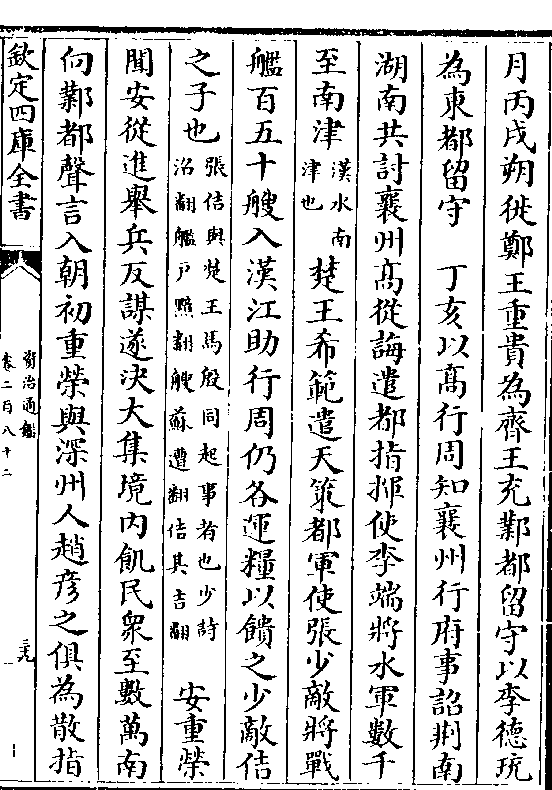 月丙戌朔徙鄭王重貴為齊王充鄴都留守以李德珫
為東都留守　丁亥以髙行周知襄州行府事詔荆南
湖南共討襄州髙從誨遣都指揮使李端將水軍數千
至南津漢水南津也楚王希範遣天策都軍使張少敵將戰
艦百五十艘入漢江助行周仍各運糧以饋之少敵佶
之子也張佶與楚王馬殷同起事者也少詩沼翻艦户黯翻艘蘇遭翻佶其吉翻　安重榮
聞安從進舉兵反謀遂決大集境内飢民衆至數萬南
向鄴都聲言入朝初重榮與深州人趙彦之俱為散指
欽定四庫全書
資治通鑑
卷二百八十二